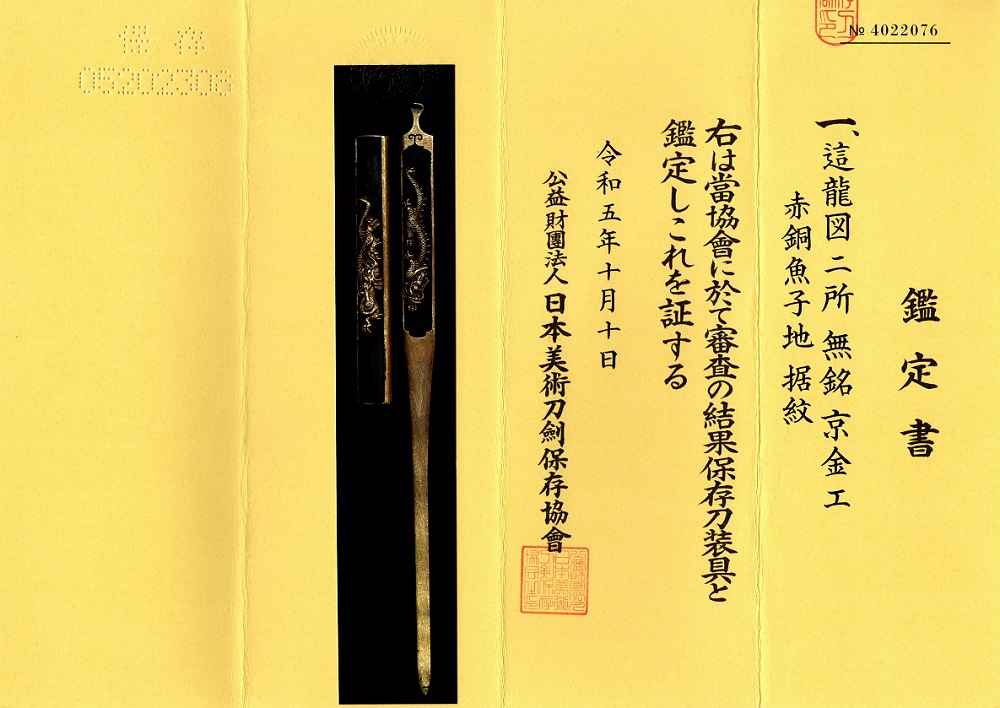 № 4022076
鑑定書
一、這龍図二所 無銘 京金工
赤銅魚子地 据紋
右は當協會に於て審査の結果保存刀装具と
鑑定しこれを証する
令和五年十月十日
公益財團法人 日本美術刀劍保存協會
保存
05202308